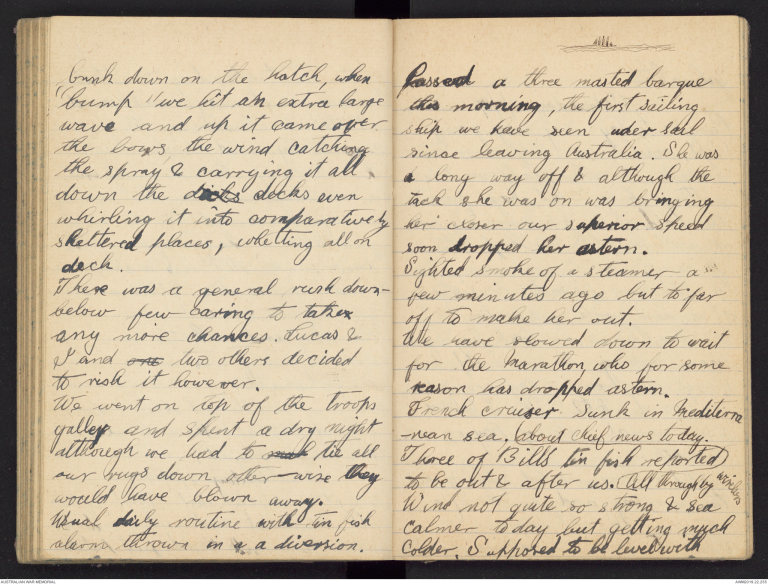 bunk down on the hatch, when
"bump" we hit an extra large
wave and up it came over
the bows the wind catching
the spray & carrying it all
down the decks decks even
whirling it into comparatively
sheltered places, whetting all on
deck.
There was a general rush down-
below few caring to take
any more chances. Lucas &
I and one two others decided
to risk it however.
We went on top of the troops
galley and spent a dry night
although we had to tie all
our rugs down other-wise they
would have blown away.
Usual daily routine with tin fish
alarm thrown in a a diversion.
Passed a three masted barque
this morning, the first sailing
ship we have seen under sail
since leaving Australia. She was
a long way off & although the
tack she was on was bringing
her closer our superior speed
soon dropped her astern.
Sighted smoke of a steamer a
few minutes ago but to far
off to make her out.
We have slowed down to wait
for the Marathon, who for some
reason has dropped astern.
French cruiser sunk in Mediterra
-nean sea. about chief news today.
Three of Bills tin fish reported
to be out & after us. (All through by wireless
Wind not quite so strong & sea
calmer today but getting much
colder. Supposed to be level with
AUSTRALIAN WAR MEMORIAL